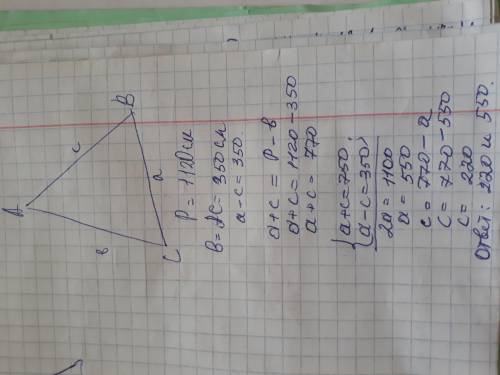 A
B
c
a
в
C
P = 1120 см
в = AC = 350 см
a - c = 350.
a + c = P - в
a + c = 1120 - 350
a + c = 770
{ a + c = 750;
{ a - c = 350;
2a = 1100
a = 550
c = 770 - a
c = 770 - 550
c = 220
Ответ: 220 и 550.